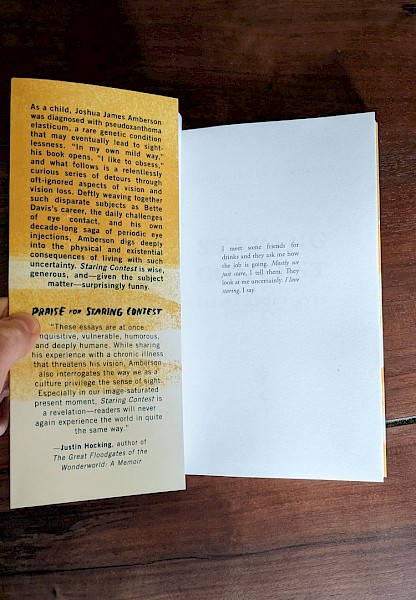 As a child, Joshua James Amberson
was diagnosed with pseudoxanthoma
elasticum, a rare genetic condition
that may eventually lead to sight-
lessness. "In my own mild way,"
his book opens, "I like to obsess,"
and what follows is a relentlessly
curious series of detours through
oft-ignored aspects of vision and
vision loss. Deftly weaving together
such disparate subjects as Bette
Davis's career, the daily challenges
of eye contact, and his own
decade-long saga of periodic eye
injections, Amberson digs deeply
into the physical and existential
consequences of living with such
uncertainty. Staring Contest is wise,
generous, and—given the subject
matter—surprisingly funny.
PRAISE FOR STARING CONTEST
"These essays are at once
inquisitive, vulnerable, humorous,
and deeply humane. While sharing
his experience with a chronic illness
that threatens his vision, Amberson
also interrogates the way we as a
culture privilege the sense of sight.
Especially in our image-saturated
present moment, Staring Contest is
a revelation—readers will never
again experience the world in quite
the same way."
—Justin Hocking, author of
The Great Floodgates of the
Wonderworld: A Memoir
I meet some friends for
drinks and they ask me how
the job is going. Mostly we
just stare, I tell them. They
look at me uncertainly. I love
staring, I say.